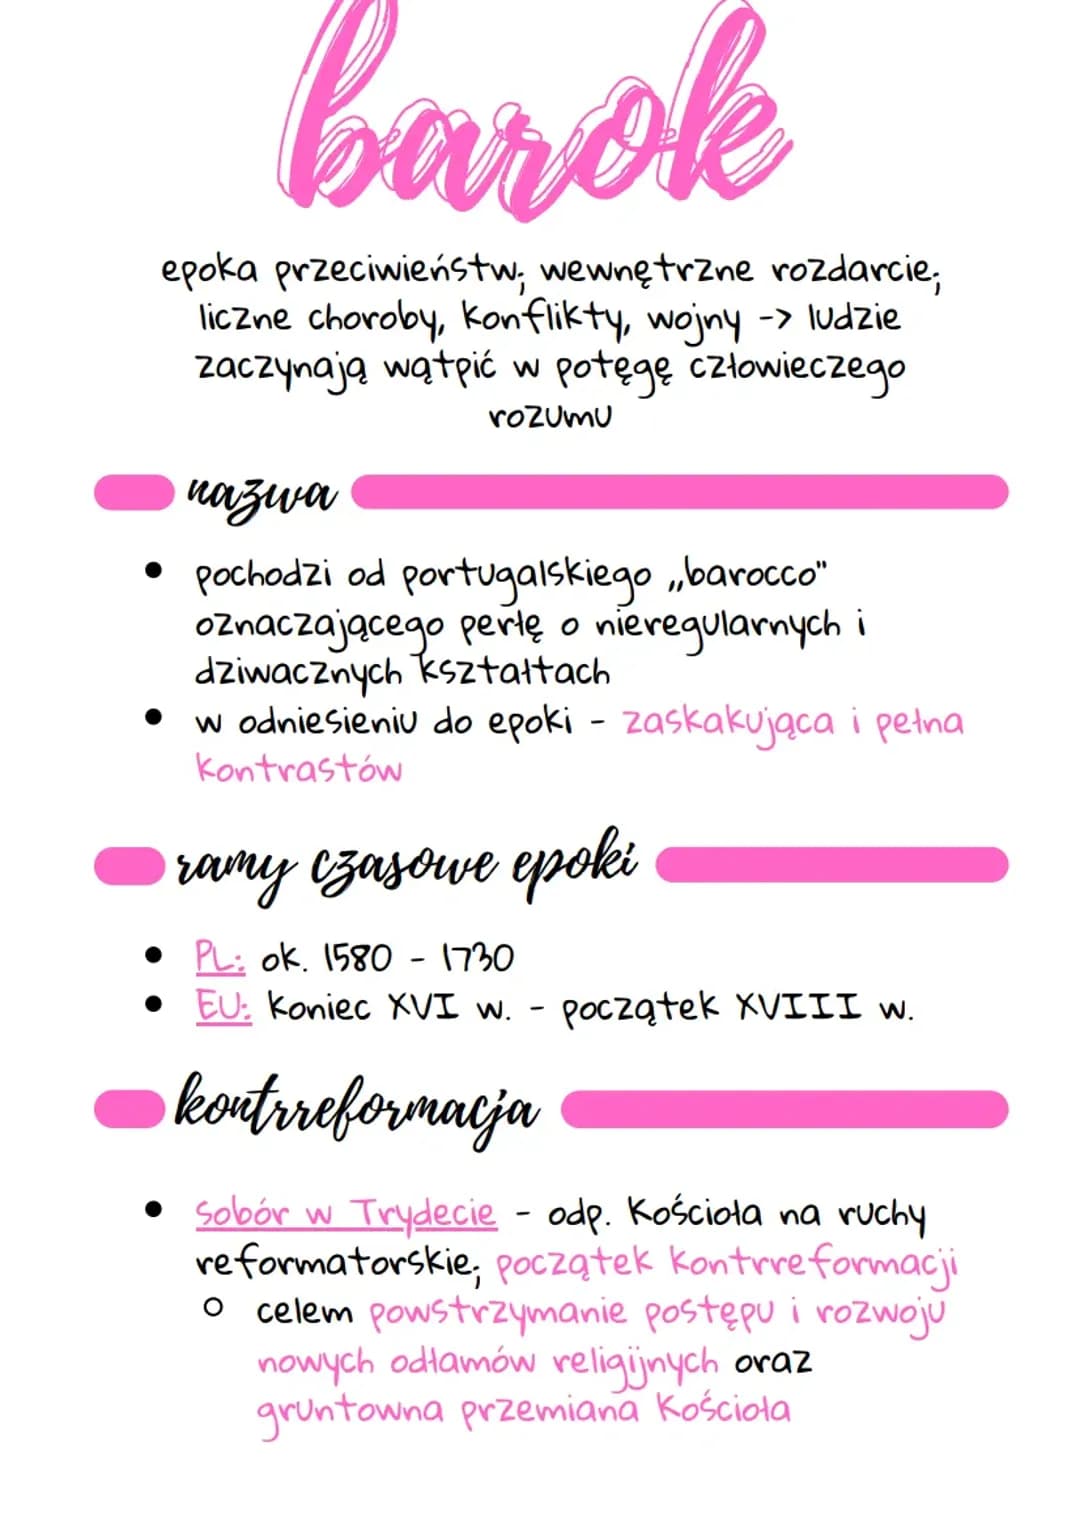 barok
epoka przeciwieństw; wewnętrzne rozdarcie;
liczne choroby, konflikty, wojny -> ludzie
zaczynają wątpić w potęgę człowieczego
rozumu
nazwa
• pochodzi od portugalskiego „barocco"
oznaczającego perłę o nieregularnych i
dziwacznych kształtach
• w odniesieniu do epoki - zaskakująca i pełna
kontrastów
ramy czasowe epoki
• PL: ok. 1580 - 1730
• EU: koniec XVI w. - początek XVIII w.
kontrreformacja
• sobór w Trydecie - odp. Kościoła na ruchy
reformatorskie; początek kontrreformacji
○ celem powstrzymanie postępu i rozwoju
nowych odłamów religijnych oraz
gruntowna przemiana Kościoła